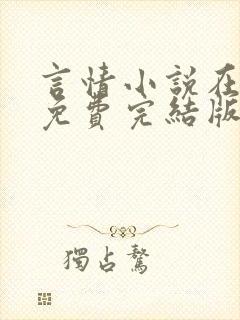 言情小說在
免費完結版
獨占驁